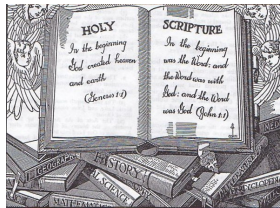 HOLY
In the beginning
God created heaven
and earth
(Genesis 1:1)
SCRIPTURE
In the beginning
was the Word: and
the Word was with
God: and the Word
was God (John 1:1)
GEOGRAPHY
HISTORY
SCIENCE
MATHEMAT
ENCYCLOPEDIA